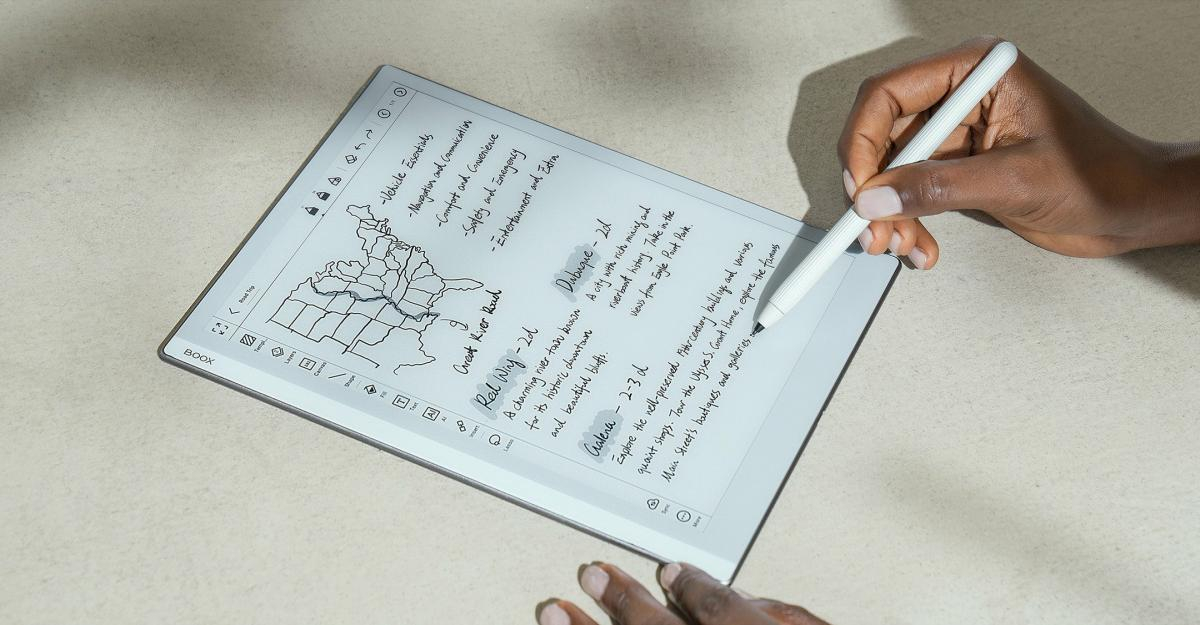 BOOX
Road Trip
1/1
Templ.
Layers
Canvas
Shape
Fill
Text
AI
AI
Insert
Lasso
Sync
More
-Vehicle Essentials
-Navigation and Communication
-Comfort and Convenience
-Safety and Emergency
-Entertainment and Extra
Great River Road
Red Wing - 2d
A charming river town known
for its historic downtown
and beautiful bluffs.
Dubuque - 2d
A city with rich mining and
riverboat history. Take in the
views from Eagle Point Park.
Galena - 2-3 d
Explore the well-preserved 19th century buildings and various
quaint shops. Tour the Ulysses S. Grant Home, explore the famous
Main Street's boutiques and galleries.